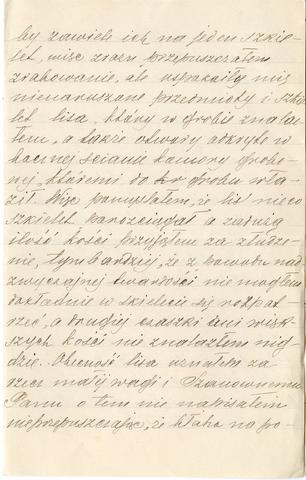 by zawiele ich na jeden szkie-
let, więc zrazu przepuszczałem
zrabowanie, ale uspakaiły mię
nienaruszone przedmioty i szki-
let lisa, który w grobie znalaz-
łem, a także otwory odkryte w
bocznej ścianie kamory grobo-
nej, któremi do grobu wła-
ził. Więc pomyślałem, że lis nieco
szkielet porozciągał a zadużą
ilość kości przyjąłem za złudze-
nie, tymbardziej, że z powodu nad-
zwyczajnej twardości nie mogłem
dokładnie w szkielecie się rozpat-
rzeć, a drugiej czaszki ani więk-
szych kości nie znalazłem nig-
dzie. Obecność lisa uznałem za
rzecz małej wagi i Szanownemu
Panu o tem nie napisałem
nieprzepuszczając, że kłaka na po-